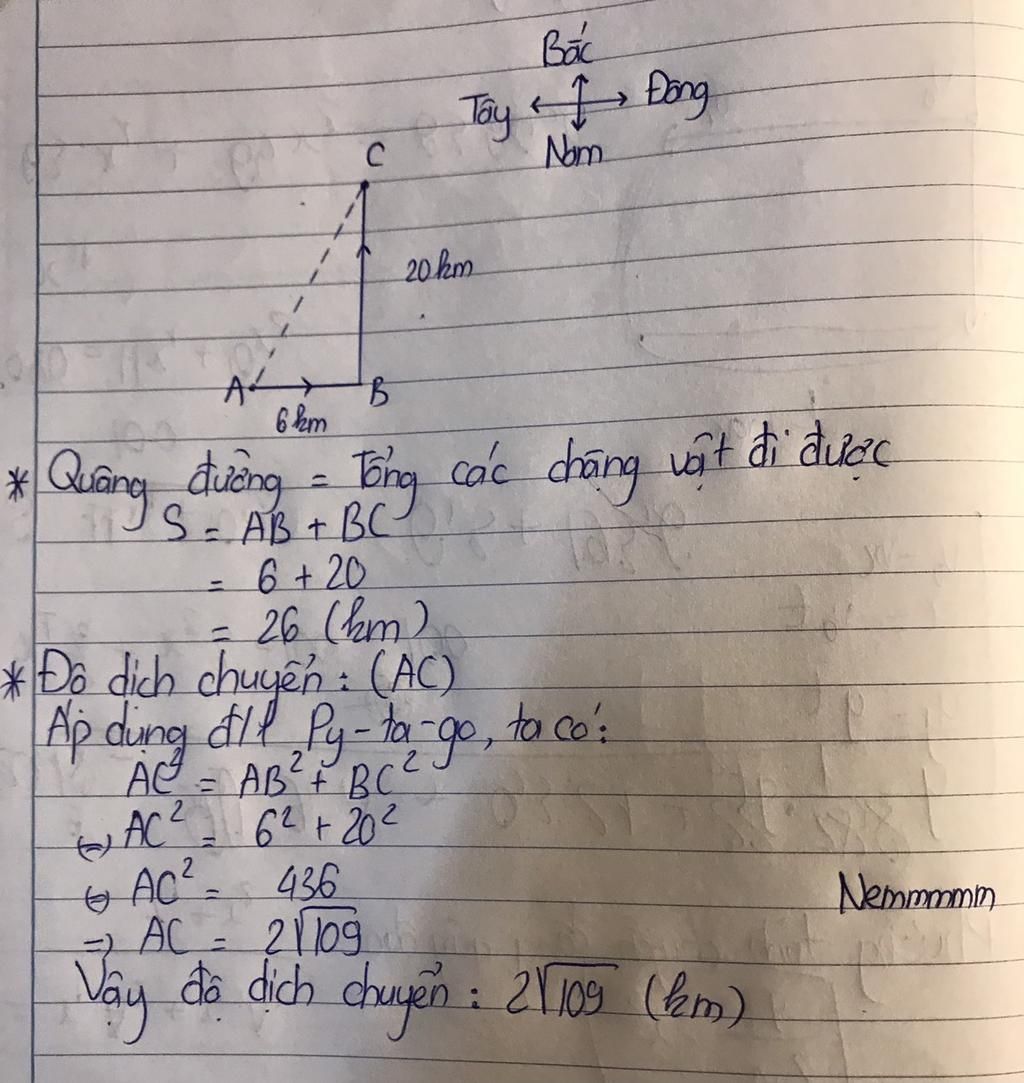 Bắc
Tây Đông
Nam
C
20 km
A B
6 km
* Quãng đường = Tổng các chặng vật đi được
S = AB + BC
= 6 + 20
= 26 (km)
* Độ dịch chuyển : (AC)
Áp dụng đ/l Py-ta-go, ta có:
AC² = AB² + BC²
⇔ AC² = 6² + 20²
⇔ AC² = 436
Nemmmmm
⇒ AC = 2√109
Vậy độ dịch chuyển : 2√109 (km)